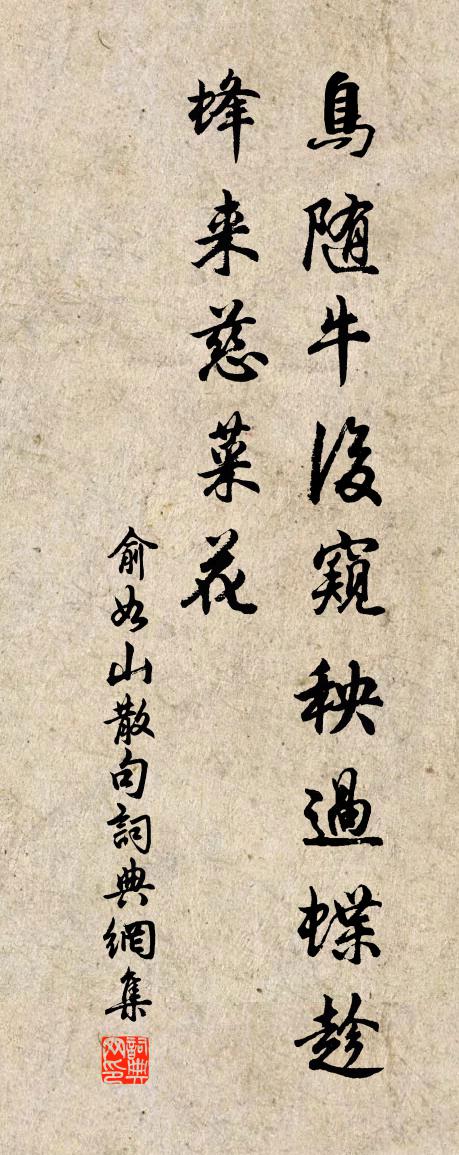 鳥随牛後窺秧過蝶趁
蜂来慈菜花
俞如山散句詞典網集
詞典网印